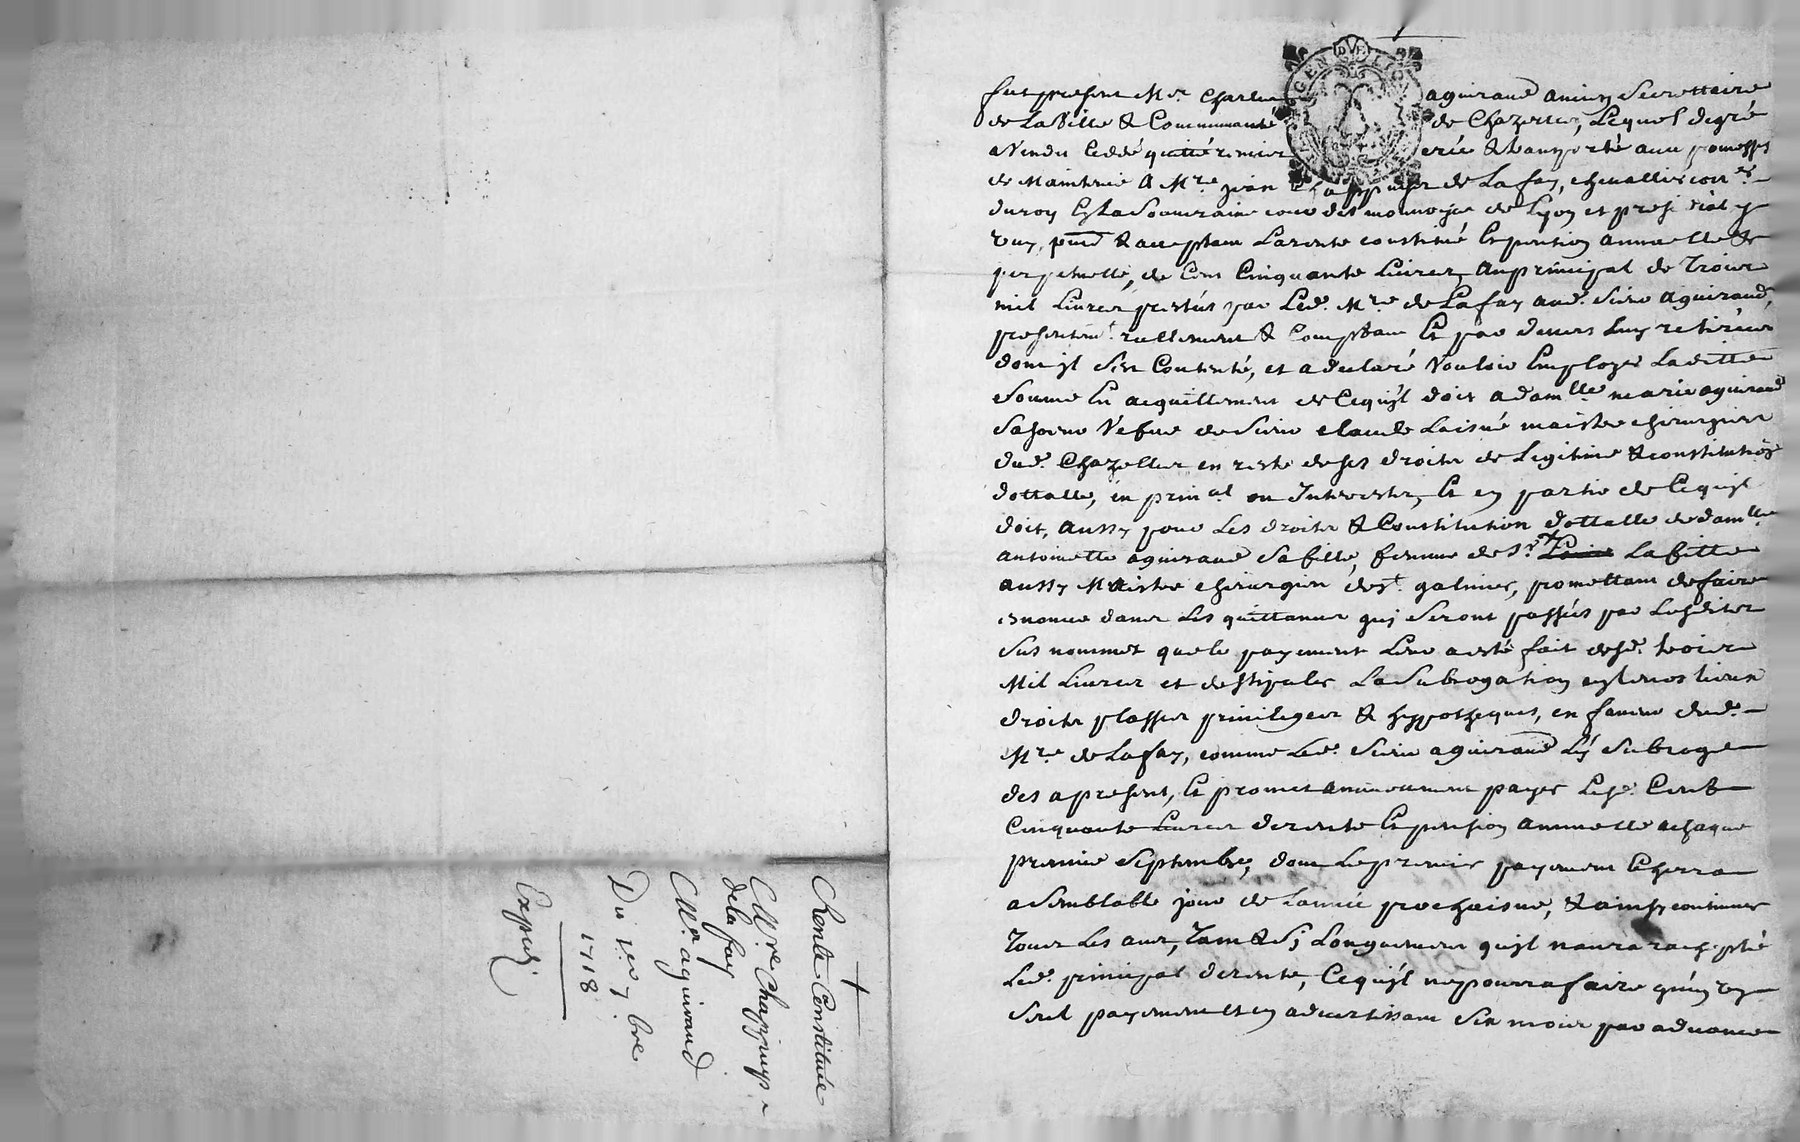 Rente Constituée
Mre. Chappuys
de la fay
Mr. aguiraud
Du 1er 7bre
1718
Expedi
GEN DE LYON
fut present Mr. Charles aguiraud antien Secrettaire
de La Ville & Communauté de Chazelles, Lequel de gré
a Vendu Ceddé quitté remis et transporté avec promesses
de Maintenir A Mre. jean Chappuys de Lafay, chevallier conr.
du roy En La Souveraine cour des monnoyes de Lyon et presidial y
uny, pnt & acceptant La rente constituée Et pention annuelle &
perpetuelle, de Cent Cinquante Livres, Au principal de Trois
mil Livres prestés par Led. Mre. de Lafay aud. Sieur aguiraud,
presentemt. reellement & Comptant Et par devers Luy retirées
dont jl s'est Contenté, et a declaré Vouloir Employer Laditte
Somme En acquittement de Cequ'jl doit a damlle marie aguiraud
Sa soeur Vefve de Sieur claude Laisné maistre chirurgien
dud. Chazelles en reste de ses droits de Legitime & constitution
dottalle, en prinal ou Interests, Et en partie de Cequ'jl
doit, aussy pour Les droits & Constitution dottalle de damlle
antoinette aguiraud Sa fille, femme de Sr. Lafitte
aussy Maistre chirurgien de st. galmier, promettant de faire
enoncer dans Les quittances quj Seront passées par Lesdites
Sus nommées que le payement Leur a esté fait desd. trois
Mil Livres et de stipuler La Subrogation
droits places privileges & hyppotheques, en faveur dud.
Mre. de Lafay, comme Led. Sieur aguiraud L'y Subroge
des a present, Et promet annuellement payer Lesd. Cent
Cinquante Livres de rente Et pension annuelle a chaque
premier Septembre, dont Le premier payement Echerra
a Semblable jour de L'année prochaine, & ainsy continuer
Tous Les ans, Tant & Sj Longuement qu'jl n'aura rachepté
Led. principal de rente, Cequ'jl ne pourra faire qu'en un
Seul payement et en advertissant Six mois par advance